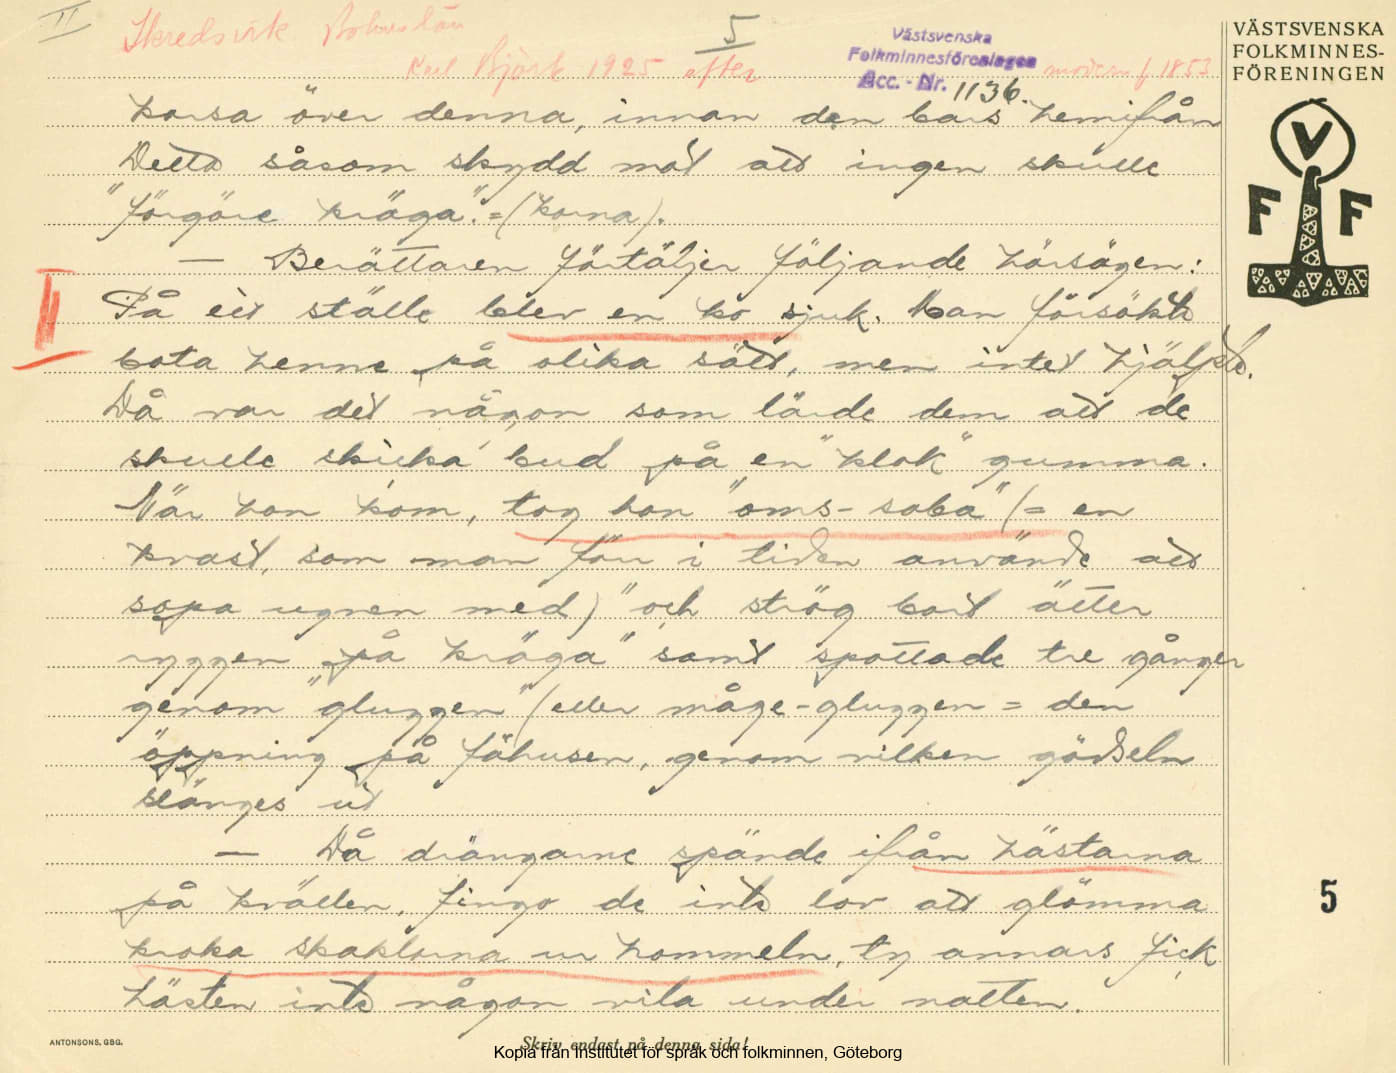 II
Skredsvik Bohuslän
5
Karl Björk 1925 efter modern f 1853
Västsvenska
Folkminnesföreningen
Acc. - Nr. 1136.
VÄSTSVENSKA
FOLKMINNES-
FÖRENINGEN
V
F F
korsa över denna, innan den bars hemifrån
Detta såsom skydd mot att ingen skulle
"förgöre kräga". = (korna).
— Berättaren förtäljer följande hörsägen:
II
På ett ställe blev en ko sjuk. Man försökte
bota henne på olika sätt, men intet hjälpte.
Då var det någon som lärde dem att de
skulle skicka bud på en "klok" gumma.
När hon kom, tog hon "oms-soba" (= en
kvast, som man förr i tiden använde att
sopa ugnen med)" och strög bort ätter
ryggen "på kräga" samt spottade tre gånger
genom "gluggen" (eller måge-gluggen = den
öppning på fähusen, genom vilken gödseln
slänges ut
— Då drängarne spände ifrån hästarna
på kvällen, fingo de inte lov att glömma
5
kroka skaklarna ur hommeln, ty annars fick
hästen inte någon vila under natten.
ANTONSONS, GBG.
Skriv endast på denna sida!
Kopia från Institutet för språk och folkminnen, Göteborg